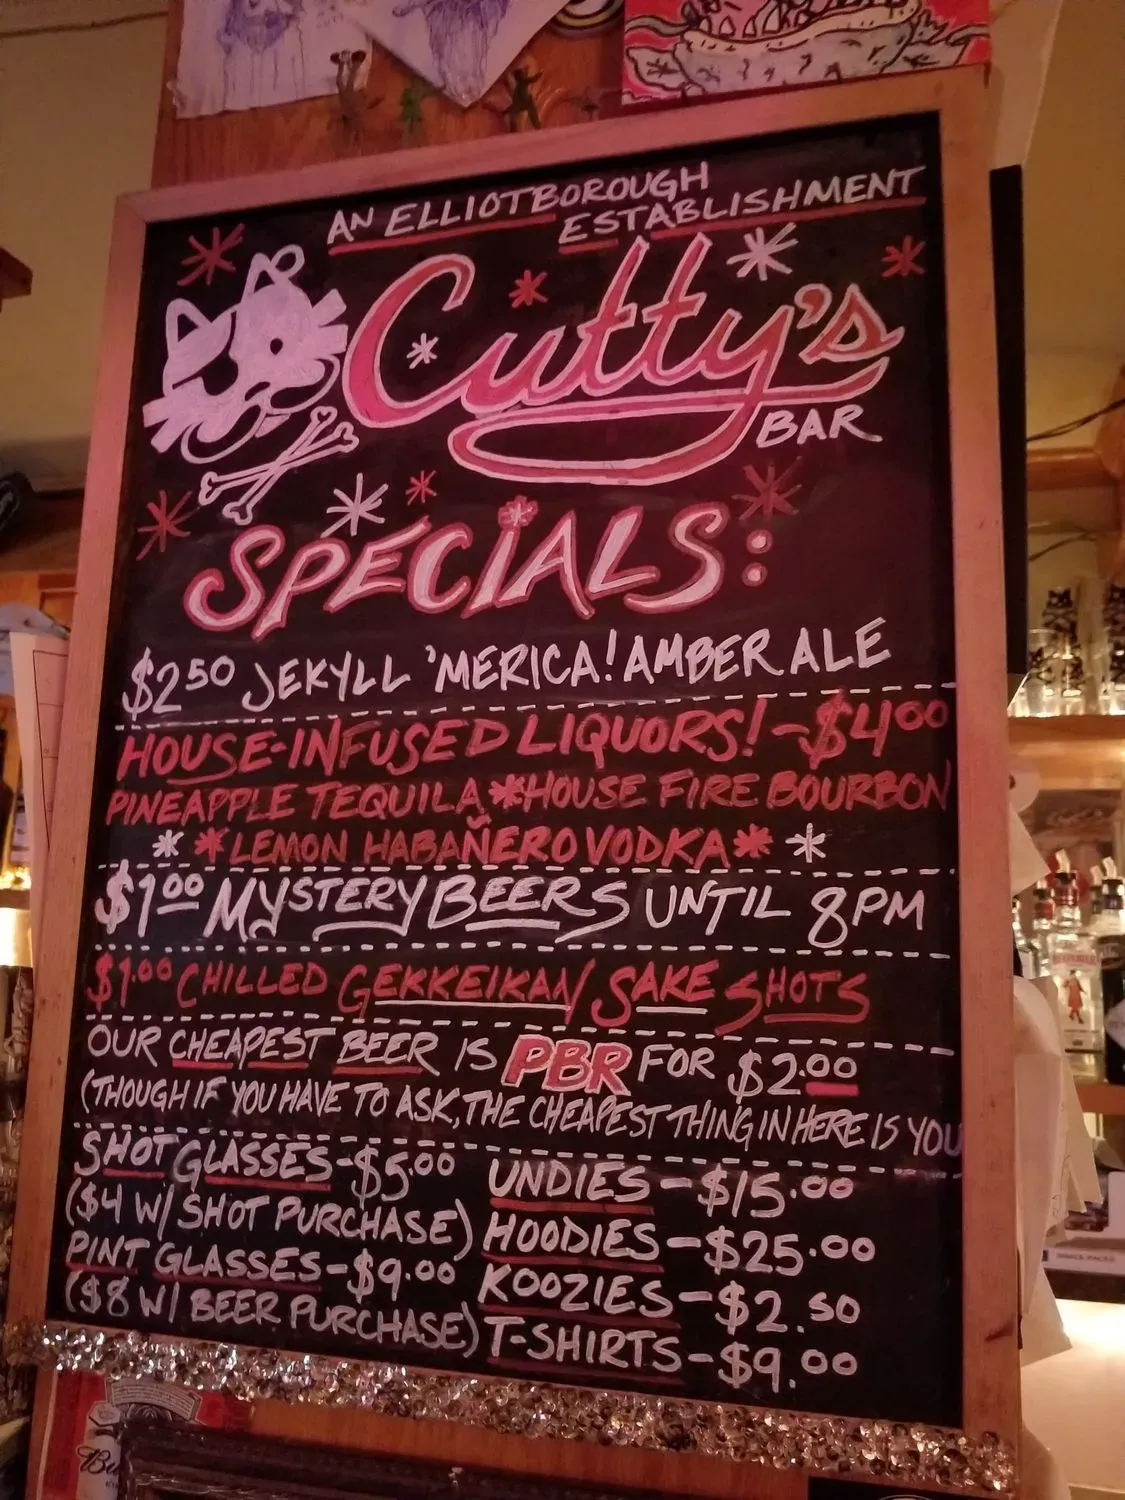 AN ELLIOTBOROUGH
ESTABLISHMENT
Cutty's
BAR
SPECIALS:
$2 50 JEKYLL 'MERICA! AMBER ALE
HOUSE-INFUSED LIQUORS! - $4 00
PINEAPPLE TEQUILA * HOUSE FIRE BOURBON
* * LEMON HABAÑERO VODKA * *
$1 00 MYSTERY BEERS UNTIL 8PM
$1.00 CHILLED GEKKEIKAN SAKE SHOTS
OUR CHEAPEST BEER IS PBR FOR $2.00
(THOUGH IF YOU HAVE TO ASK, THE CHEAPEST THING IN HERE IS YOU
SHOT GLASSES - $5.00
($4 W/ SHOT PURCHASE)
PINT GLASSES - $9.00
($8 W/ BEER PURCHASE)
UNDIES - $15.00
HOODIES - $25.00
KOOZIES - $2.50
T-SHIRTS - $9.00